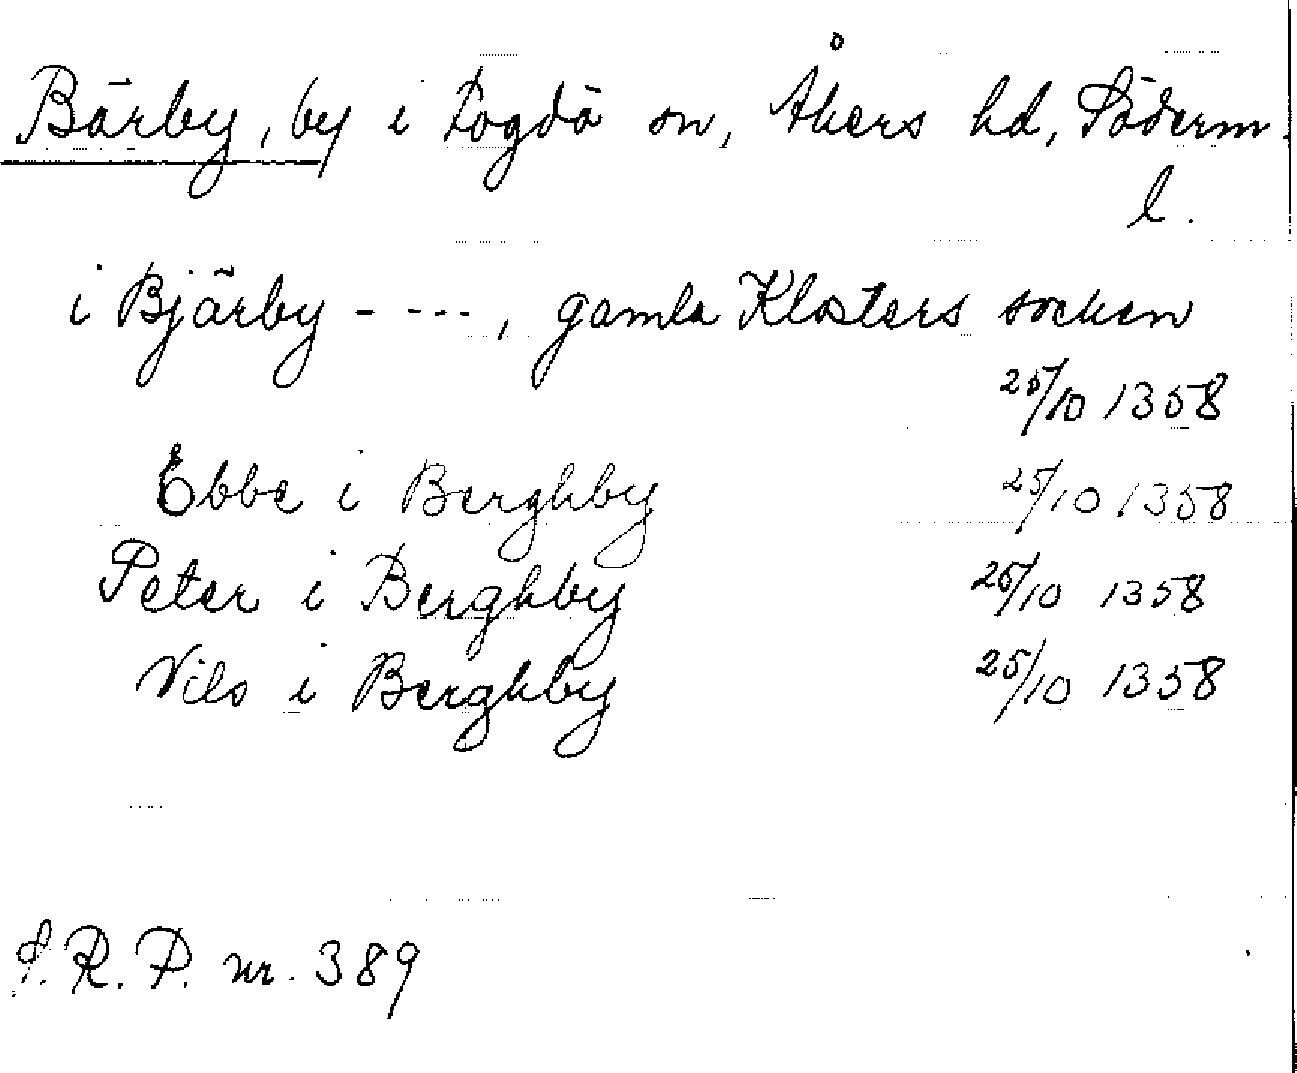 Bärby, by i Fogdö sn, Åkers hd, Söderm.
l.
i Bjärby - - - -, gamla Klosters socken
25/10 1358
Ebbe i Berghby 25/10 1358
Peter i Berghby 25/10 1358
Nils i Berghby 25/10 1358
S.R.P. nr. 389